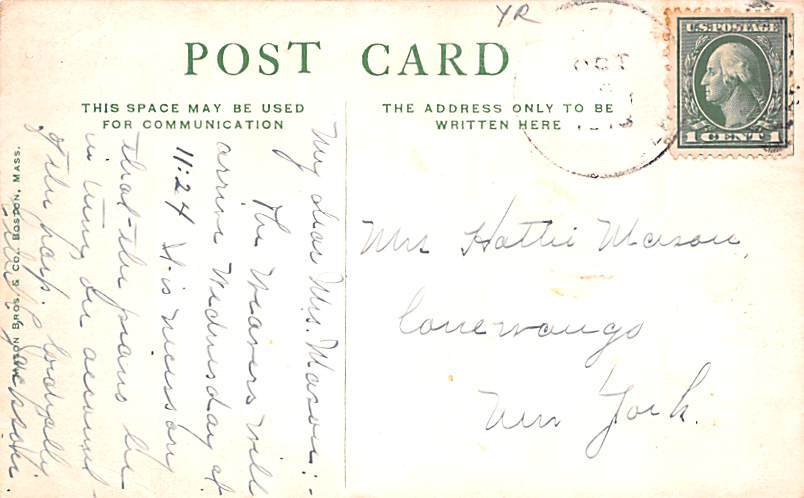 YR
POST CARD
THIS SPACE MAY BE USED
FOR COMMUNICATION
THE ADDRESS ONLY TO BE
WRITTEN HERE
U.S. POSTAGE
1 CENT 1
OCT
My dear Mrs. Mason:-
The Weavers will
arrive Wednesday at
11:24 It is necessary
that the piano be
in tune on account
of the harp. Cordially
Jackson.
Mrs Hattie Mason,
Conewango
New York.
BROS. & CO., BOSTON, MASS.